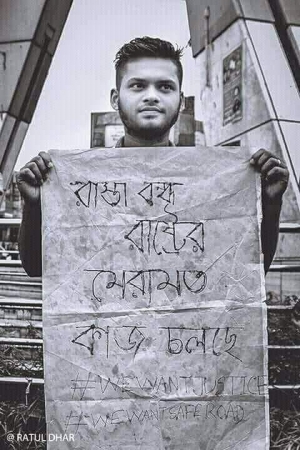 রাস্তা বন্ধ
রাষ্ট্রের
মেরামত
কাজ চলছে
#WEWANTJUSTICE
#WEWANTSAFEROAD
@RATUL DHAR